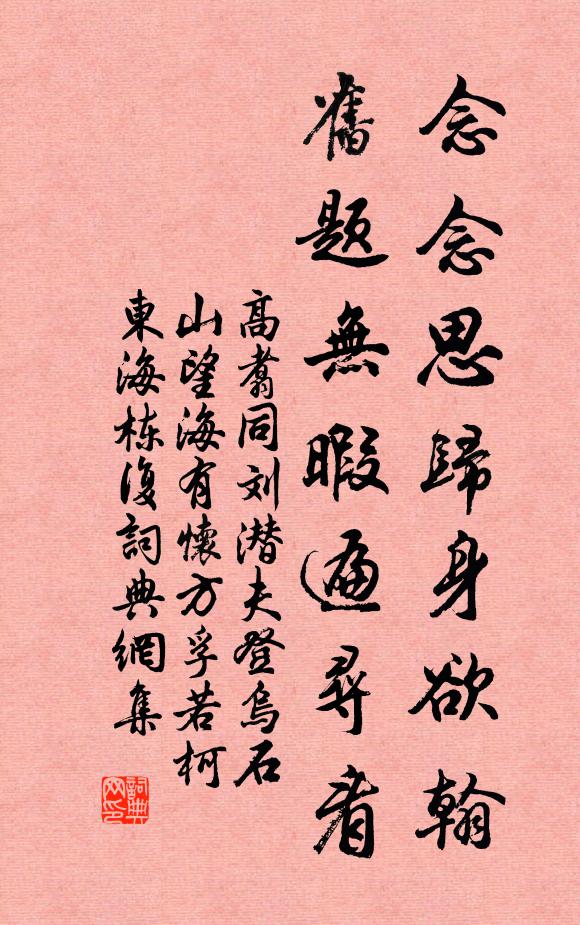 念念思歸身欲翰
舊題無暇遍尋看
高翥同刘潜夫登烏石
山望海有懷方孚若柯
東海栋復詞典網集
詞典網印